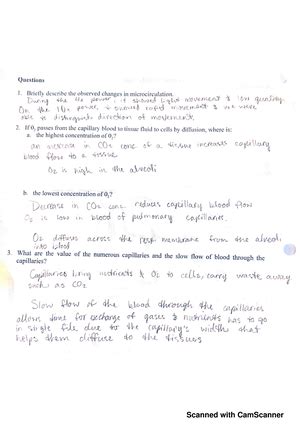 Questions
1. Briefly describe the observed changes in microcirculation.
During the 40x power, it showed light movement & low quality
On the 100x power, it showed rapid movement & we were
able to distinguish direction of movement.
2. If O₂ passes from the capillary blood to tissue fluid to cells by diffusion, where is:
a. the highest concentration of O₂?
an increase in CO₂ conc of a tissue increases capillary
blood flow to a tissue
O₂ is high in the alveoli
b. the lowest concentration of O₂?
Decrease in CO₂ conc. reduces capillary blood flow
O₂ is low in blood of pulmonary capillaries.
O₂ diffuses across the resp. membrane from the alveoli
into blood
3. What are the value of the numerous capillaries and the slow flow of blood through the
capillaries?
Capillaries bring nutrients & O₂ to cells, carry waste away
such as CO₂
Slow flow of the blood through the capillaries
allows time for exchange of gases & nutrients has to go
in single file due to the capillary's width that
helps them diffuse to the tissues
Scanned with CamScanner